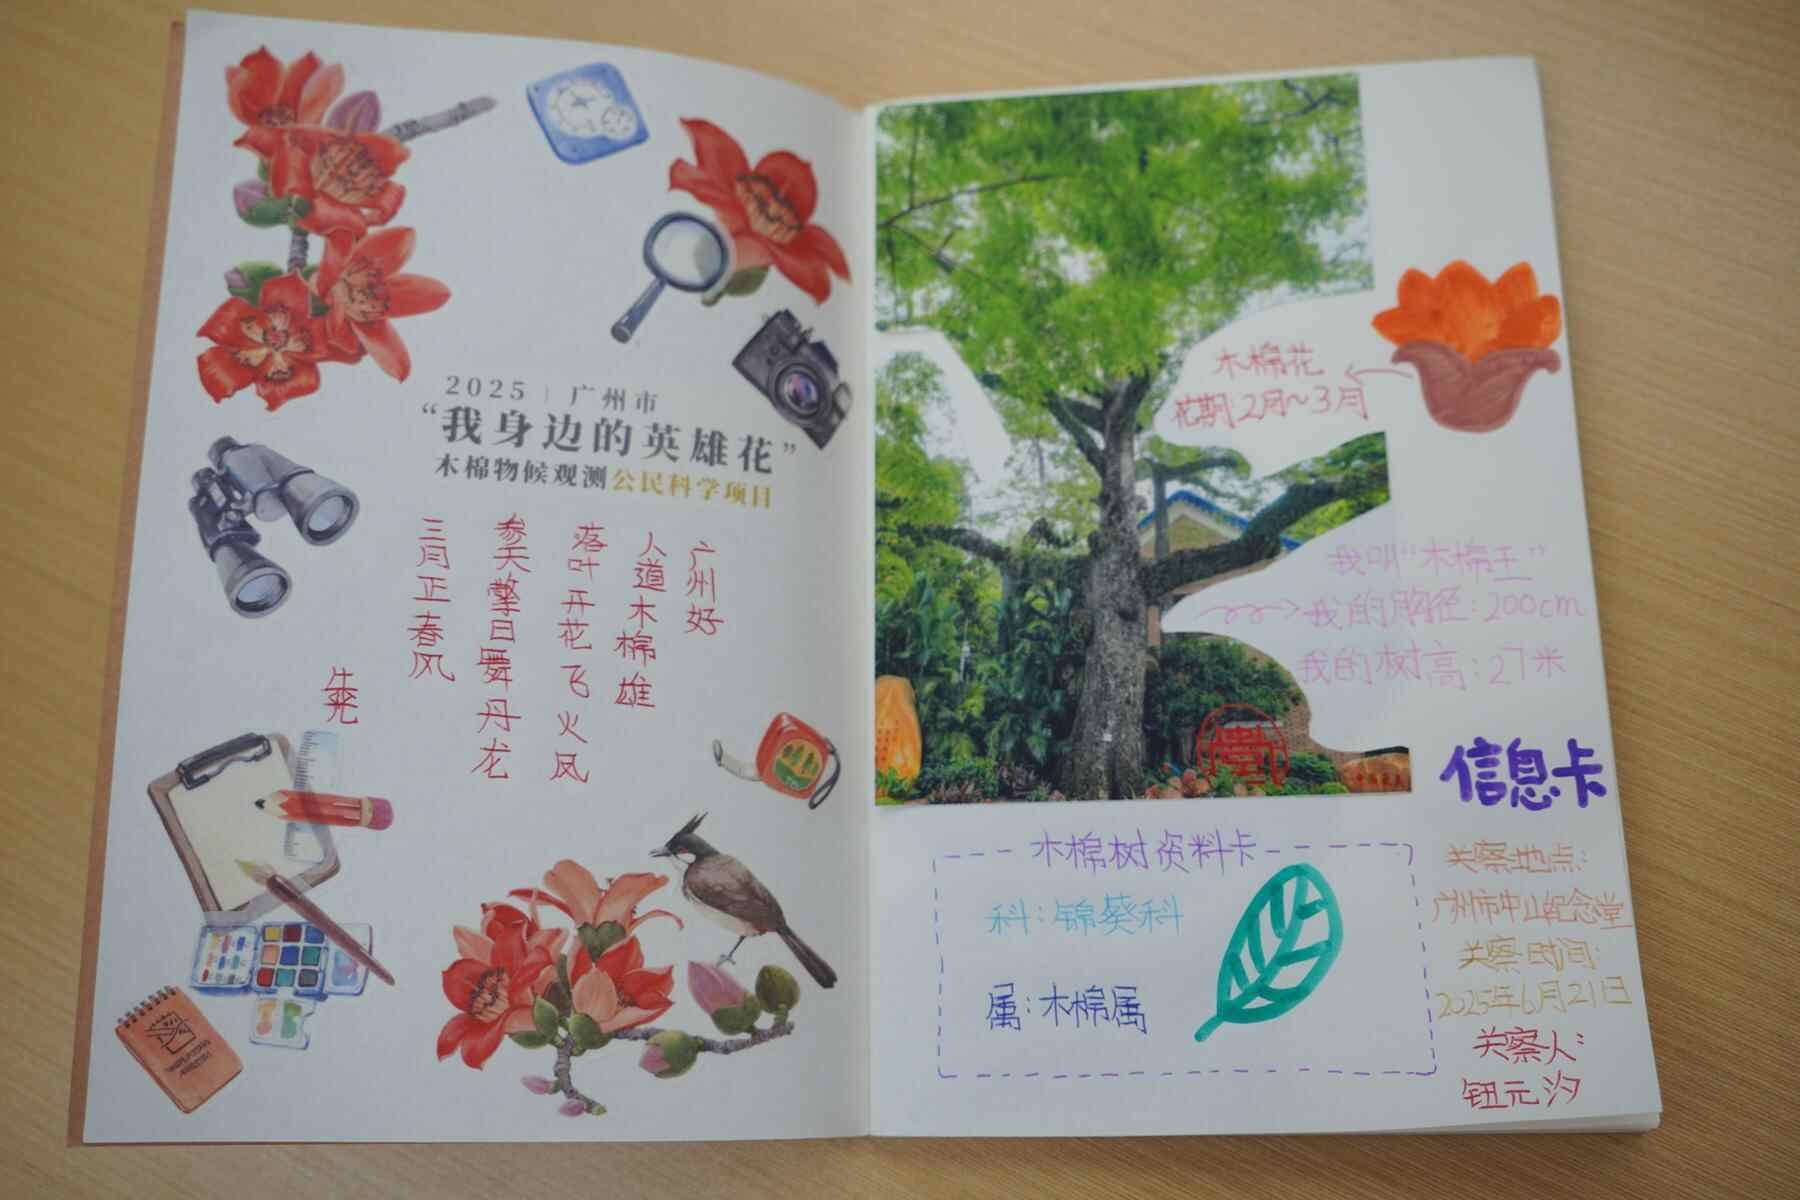 2025 | 广州市
“我身边的英雄花”
木棉物候观测公民科学项目
广州好
人道木棉雄
落叶开花飞火凤
参天擎日舞丹龙
三月正春风
朱光
木棉花
花期:2月~3月
我叫“木棉王”
我的胸径:200cm
我的树高:27米
信息卡
木棉树资料卡
科:锦葵科
属:木棉属
关察地点:
广州市中山纪念堂
关察时间:
2025年6月21日
关察人:
钮元汐